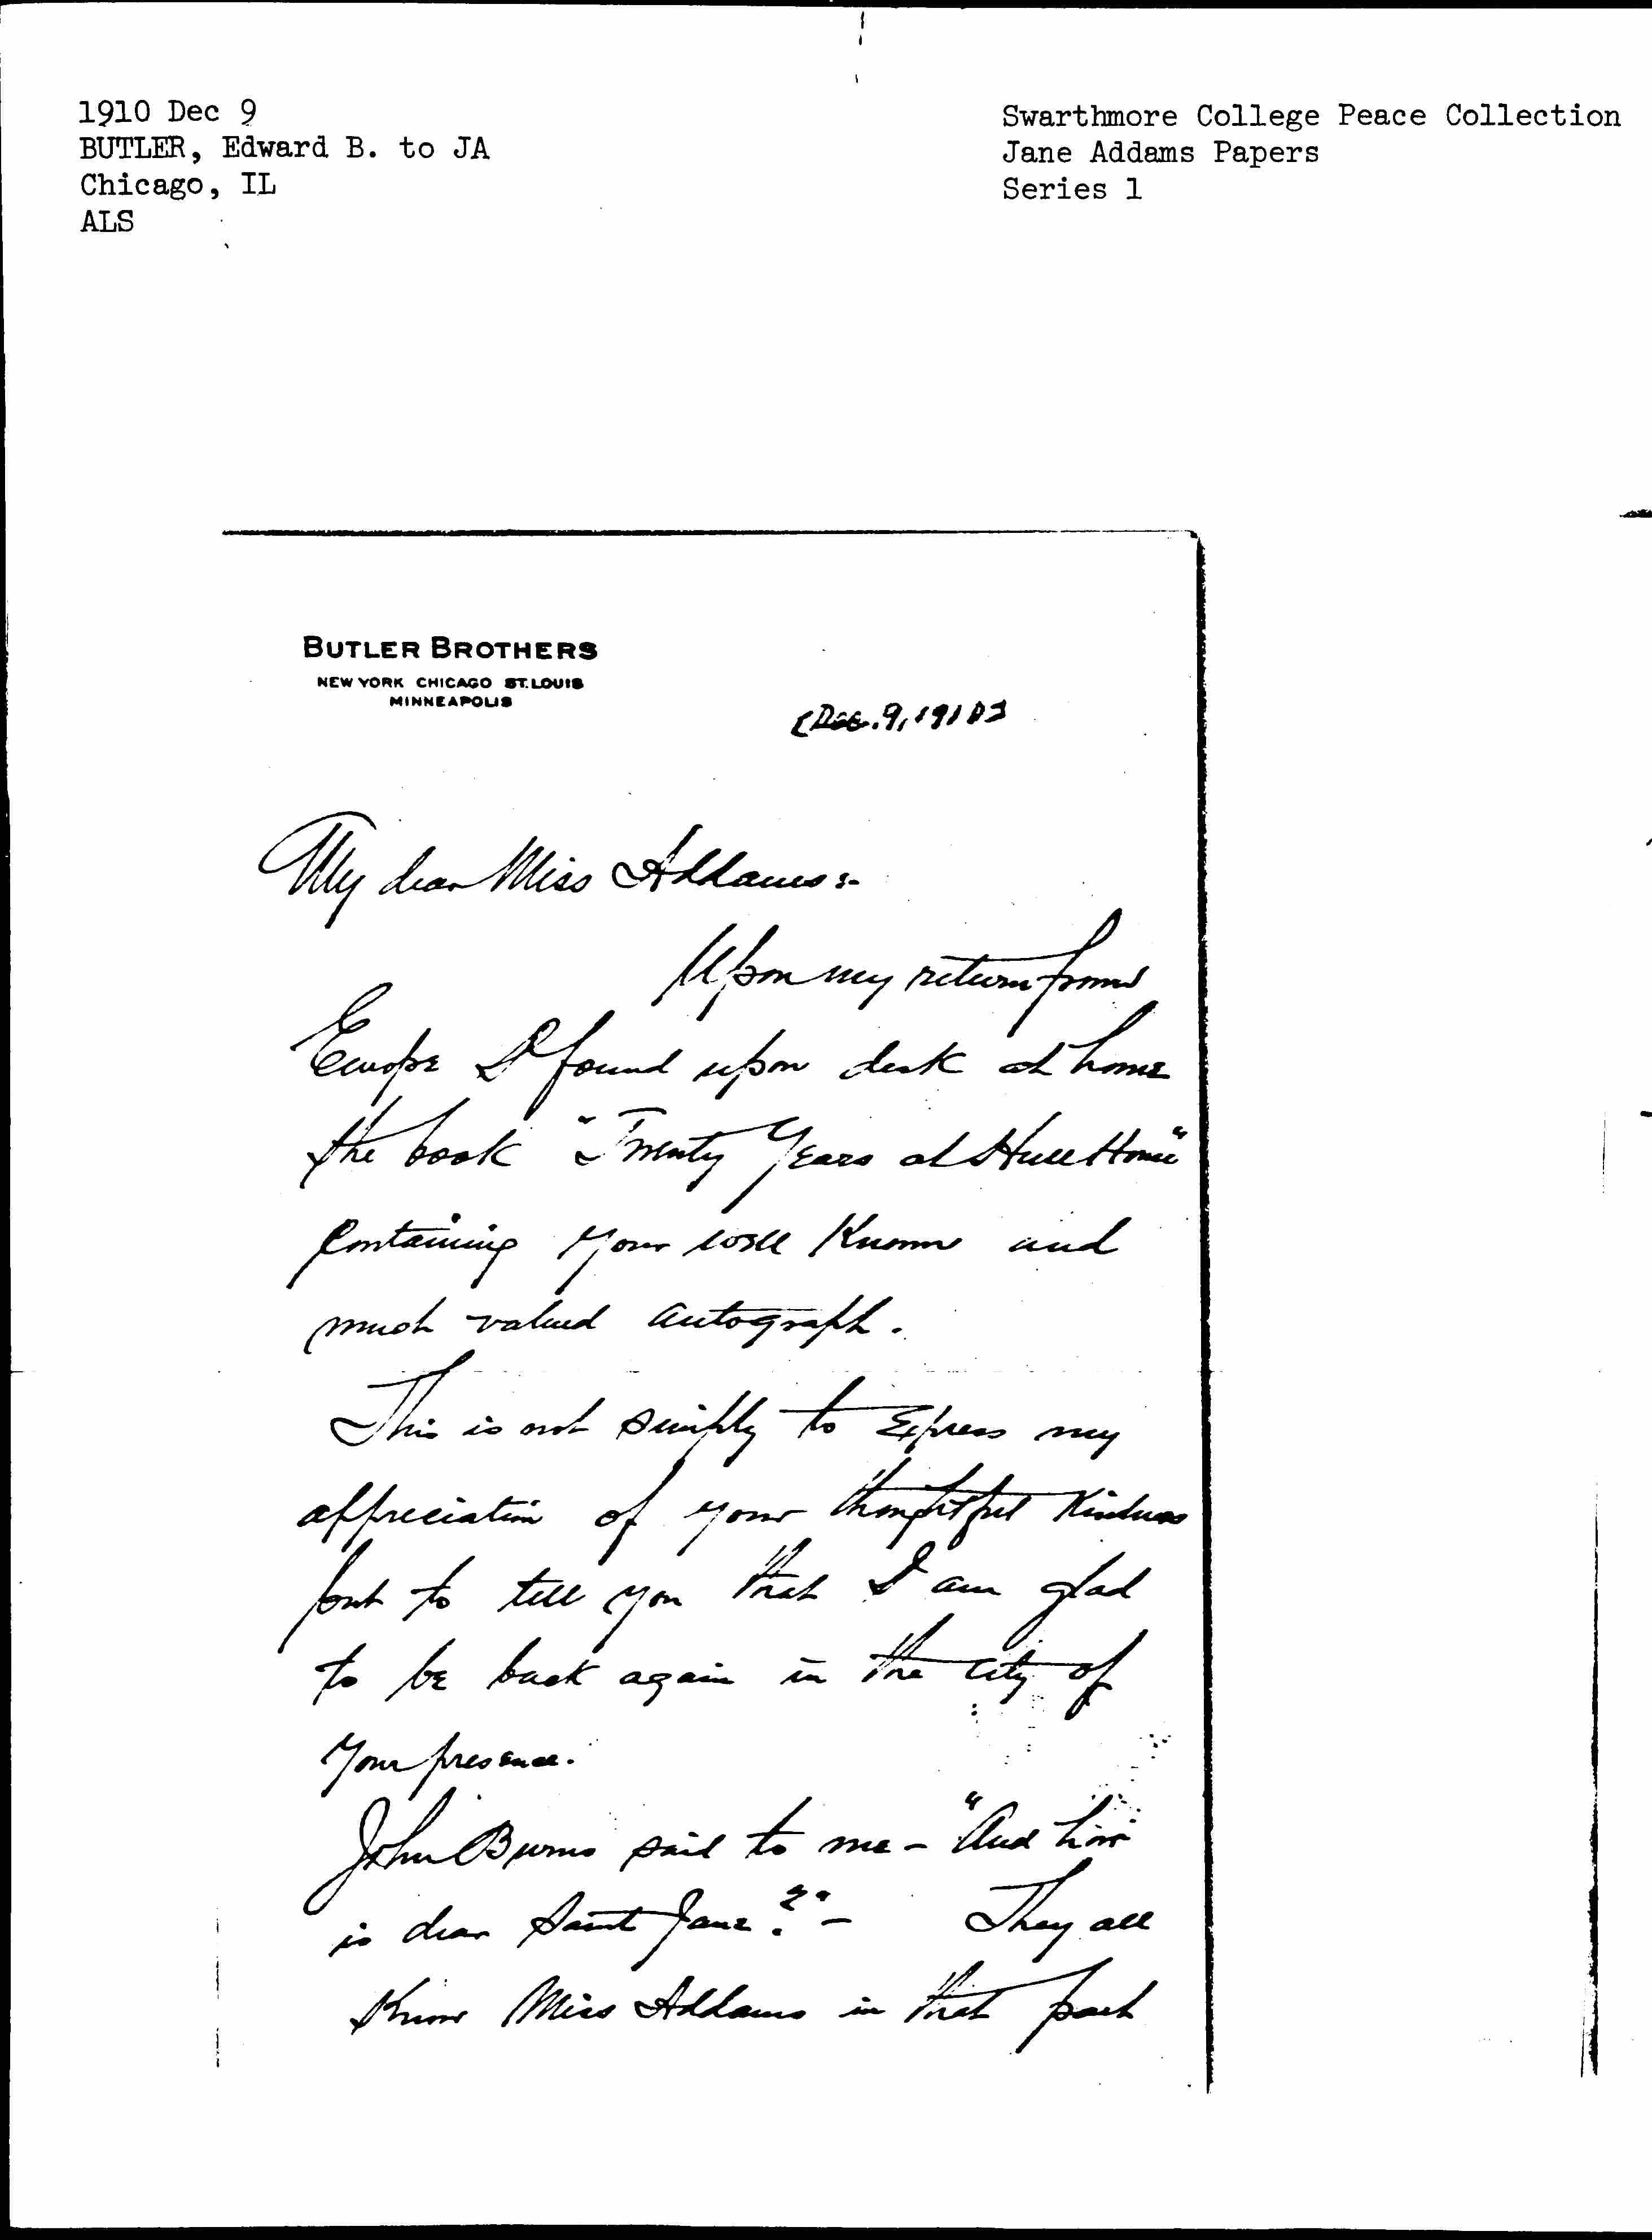 1910 Dec 9
BUTLER, Edward B. to JA
Chicago, IL
ALS
Swarthmore College Peace Collection
Jane Addams Papers
Series 1
BUTLER BROTHERS
NEW YORK CHICAGO ST. LOUIS
MINNEAPOLIS
[Dec. 9, 1910]
My dear Miss Addams:-
Upon my return from
Europe I found upon desk at home
the book "Twenty Years at Hull House"
Containing your well Known and
much valued autograph.
This is not simply to Express my
appreciation of your thoughtful Kindness
but to tell you that I am glad
to be back again in the city of
your presence.
John Burns said to me - "And how
is dear Saint Jane?" - They all
Know Miss Addams in that part